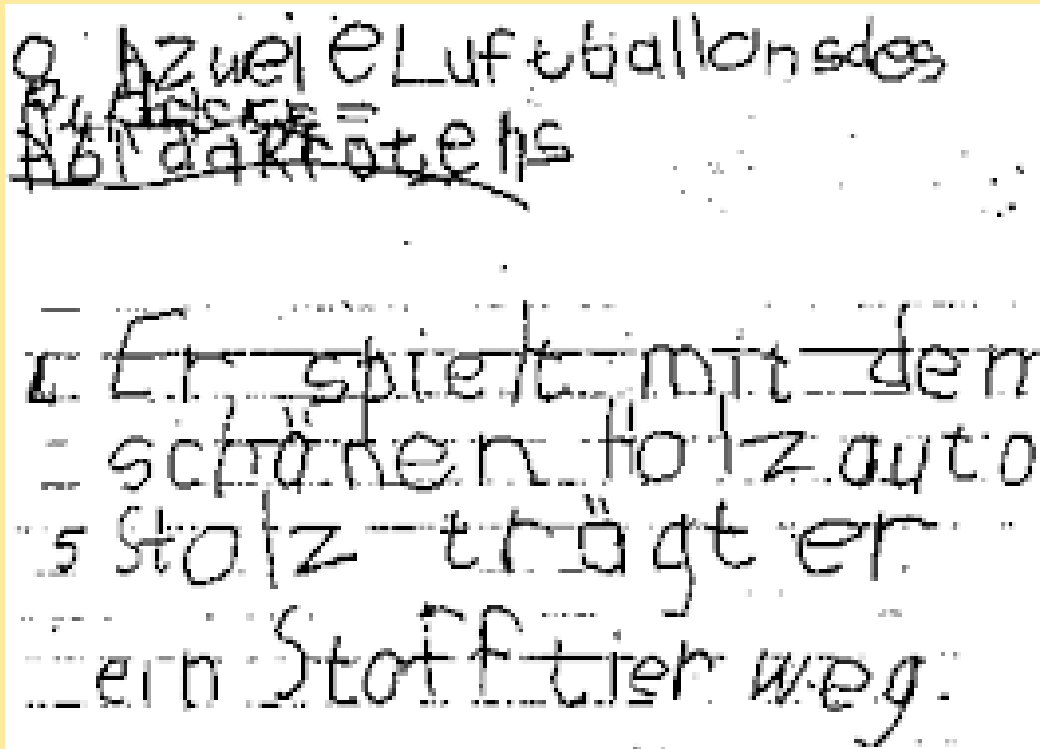 Luftballons des
Er spielt mit dem
schönen Holzauto
5 Stolz trägt er
ein Stofftier weg.